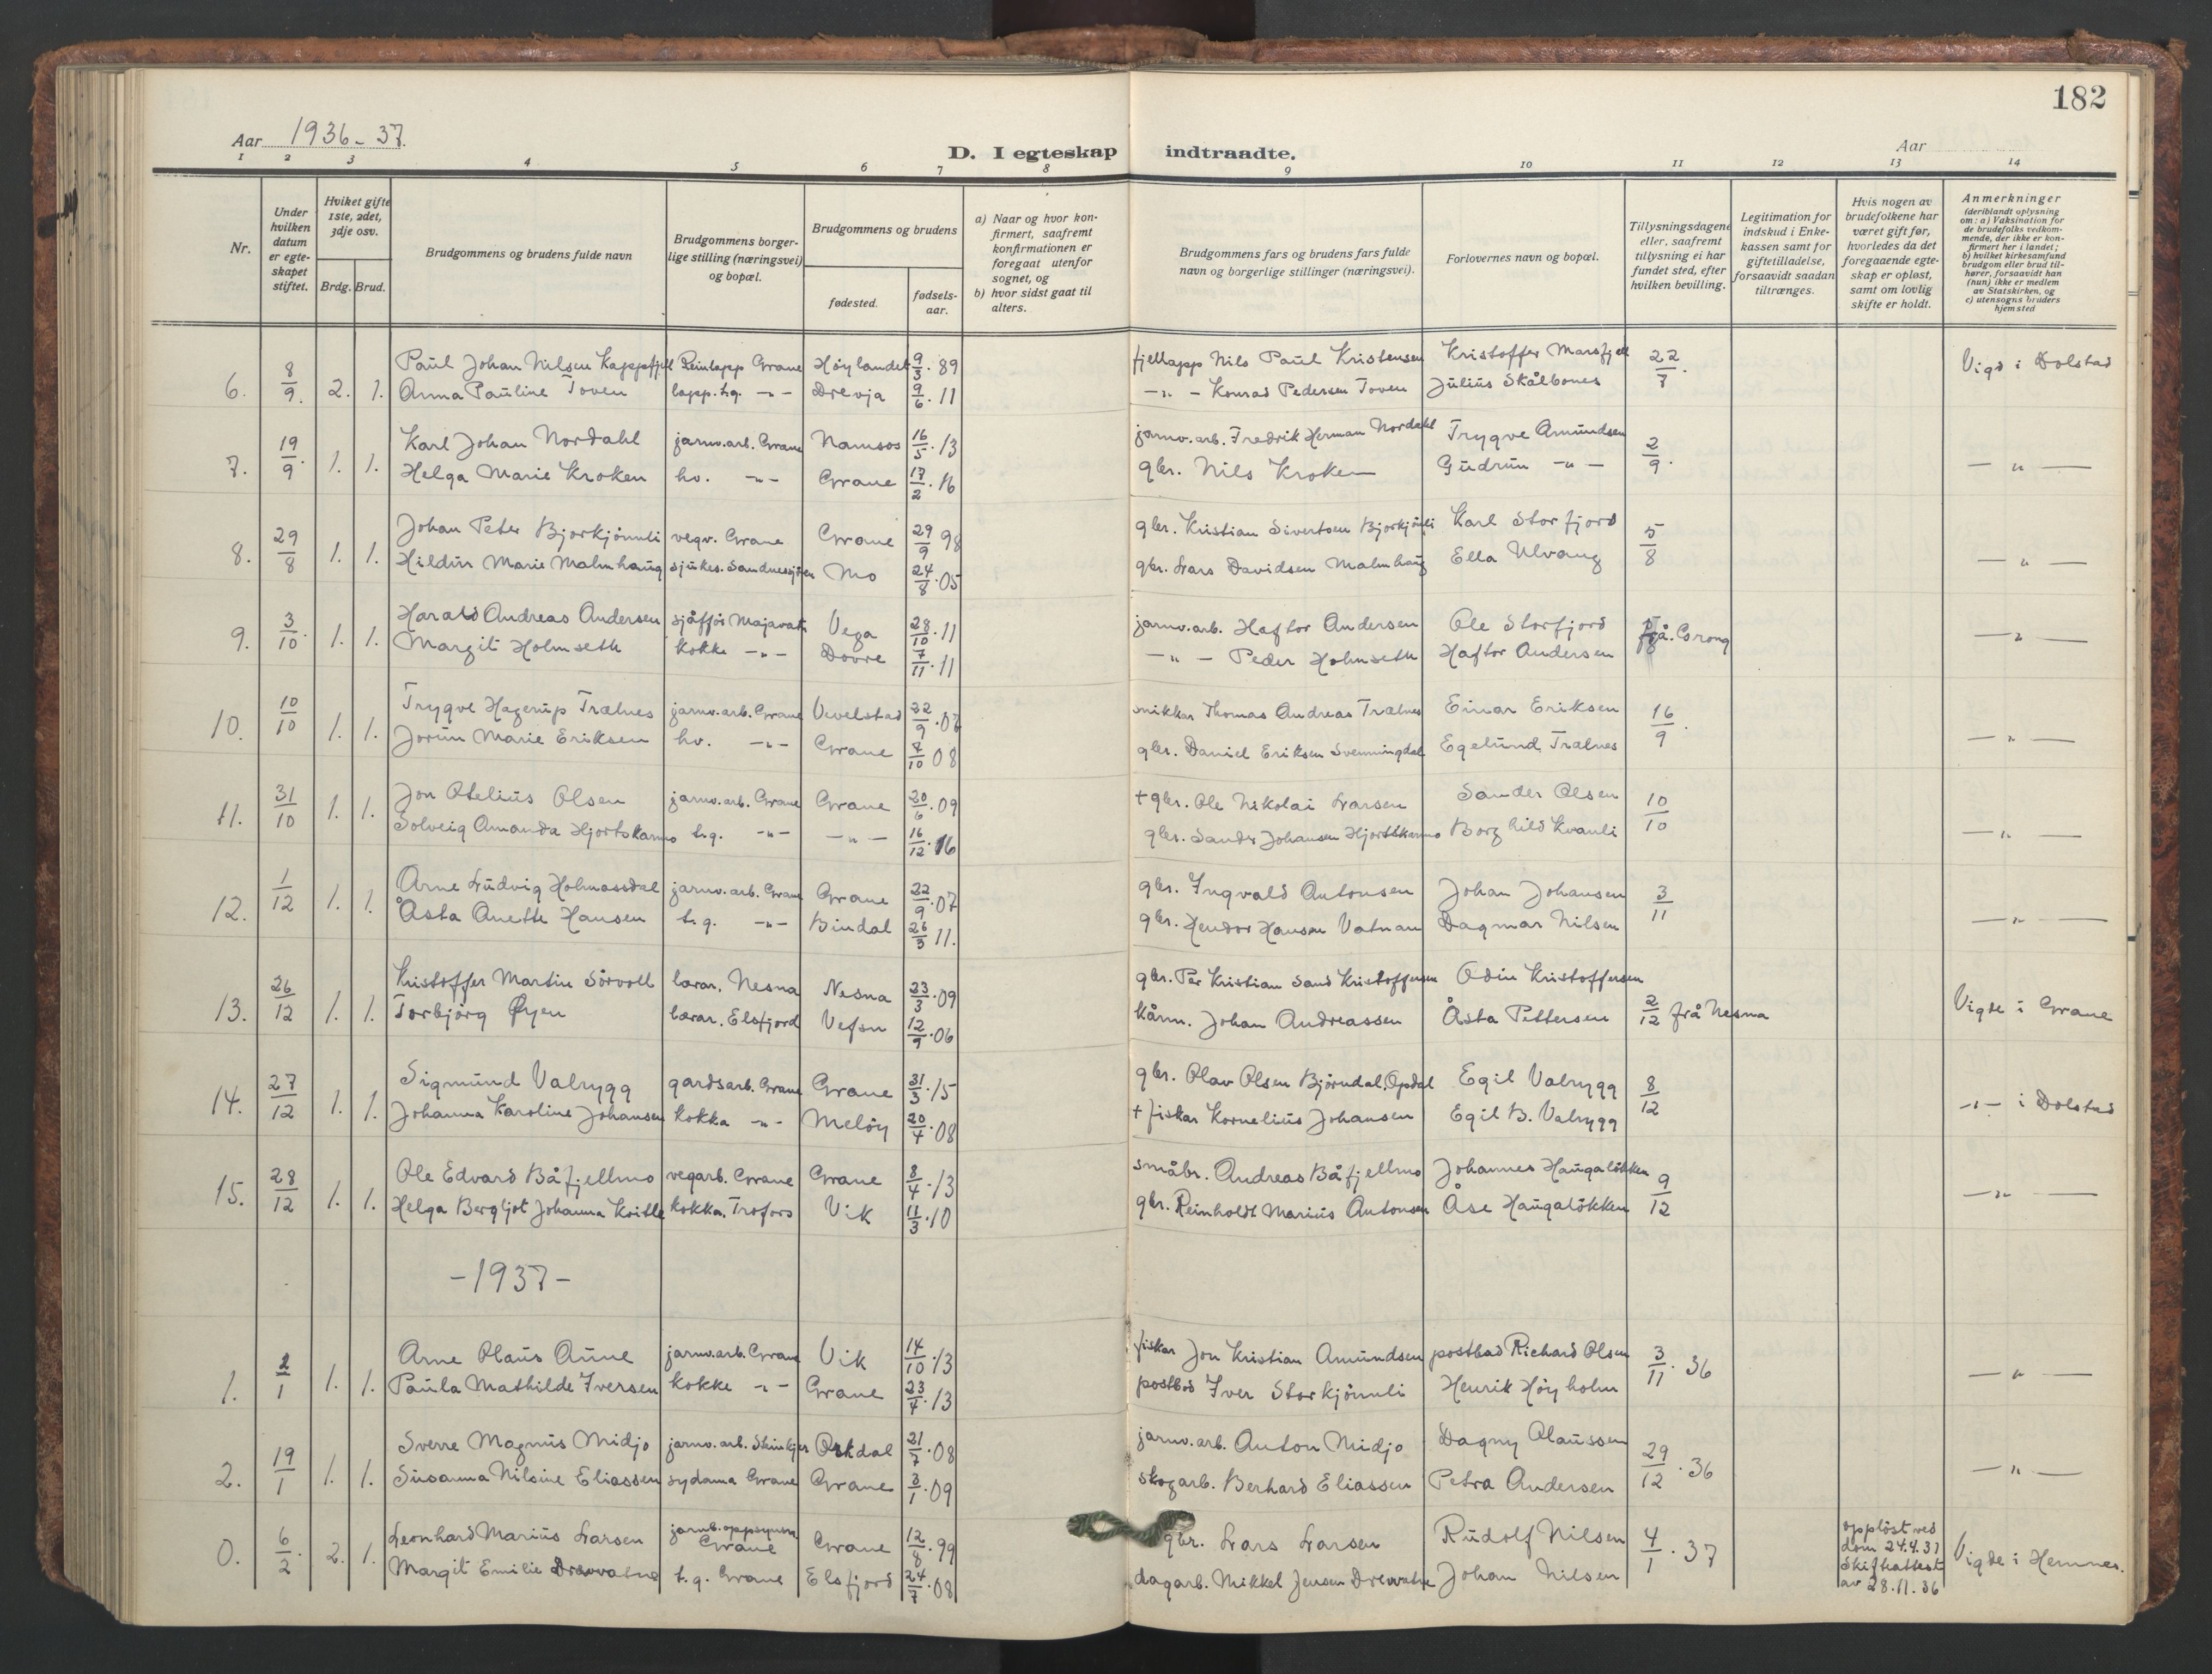 182
Aar 1936-37.
D. I egteskap indtraadte.
Aar
1 2 3 4 5 6 7 8 9 10 11 12 13 14
Nr.
Under hvilken datum er egteskapet stiftet.
Hviket gifte 1ste, 2det, 3dje osv.
Brdg. Brud.
Brudgommens og brudens fulde navn
Brudgommens borgerlige stilling (næringsvei) og bopæl.
Brudgommens og brudens
fødested.
fødsels-aar.
a) Naar og hvor konfirmert, saafremt konfirmationen er foregaat utenfor sognet, og
b) hvor sidst gaat til alters.
Brudgommens fars og brudens fars fulde navn og borgerlige stillinger (næringsvei).
Forlovernes navn og bopæl.
Tillysningsdagene eller, saafremt tillysning ei har fundet sted, efter hvilken bevilling.
Legitimation for indskud i Enkekassen samt for giftetilladelse, forsaavidt saadan tiltrænges.
Hvis nogen av brudefolkene har været gift før, hvorledes da det foregaaende egteskap er opløst, samt om lovlig skifte er holdt.
Anmerkninger (deriblandt oplysning om: a) Vaksination for de brudefolks vedkommende, der ikke er konfirmert her i landet; b) hvilket kirkesamfund brudgom eller brud tilhører, forsaavidt han (hun) ikke er medlem av Statskirken, og c) utensogns bruders hjemsted
6. 8/9. 2. 1. Paul Johan Nilsen Kappfjell Reinlapp Grane Høylandet 9/3.89 fjellapp Nils Paul Kristensen Kristoffer Marsfjell 22/7. Vigd i Dolstad
Anna Pauline Toven lapp.t.g. -"- Drevja 9/6.11 -"- Konrad Pedersen Toven Julius Skålbones
7. 19/9. 1. 1. Karl Johan Nordahl jarnv.arb. Grane Namsos 16/5.13 jarnv.arb. Fredrik Herman Nordahl Trygve Amundsen 2/9. -"-
Helga Marie Kroken hv. -"- Grane 17/2.16 gbr. Nils Kroken Gudrun -"-
8. 29/8 1. 1. Johan Peter Bjorkjönnli vegv. Grane Grane 29/9 98 gbr. Kristian Sivertsen Bjorkjönli Karl Storfjord 5/8 -"-
Hildur Marie Malmhaug sjukes. Sandnessjöen Mo 24/8.05 gbr. Lars Davidsen Malmhaug Ella Ulvang
9. 3/10. 1. 1. Harald Andreas Andersen sjåfför Majavatn Vega 28/10.11 jarnv.arb. Haftor Andersen Ole Storfjord frå Grong -"-
Margit Holmseth kokke -"- Dovre 7/11.11 -"- Peder Holmseth Haftor Andersen
10. 10/10 1. 1. Trygve Hagerup Trælnes jarnv.arb. Grane Vevelstad 22/9.07 snikkar Thomas Andreas Trælnes Einar Eriksen 16/9. -"-
Jorun Marie Eriksen hv. -"- Grane 7/10 08 gbr. Daniel Eriksen Svenningdal Egelund Trælnes
11. 31/10 1. 1. Jon Otelius Olsen jarnv.arb. Grane Grane 20/6.09 + gbr. Ole Nikolai Larsen Sander Olsen 10/10 -"-
Solveig Amanda Hjortskarmo t.g. -"- -"- 16/12.16 gbr. Sander Johansen Hjortskarmo Borghild Kvanli
12. 1/12 1. 1. Arne Ludvig Holmåssdal jarnv.arb. Grane Grane 22/9.07 gbr. Ingvald Antonsen Johan Johansen 3/11 -"-
Åsta Anette Hansen t.g. -"- Bindal 26/3 11. gbr. Hendor Hansen Vatnan Dagmar Nilsen
13. 26/12 1. 1. Kristoffer Martin Sörvoll lærar, Nesna Nesna 23/3.09 gbr. Per Kristian Sand Kristoffersen Odin Kristoffersen 2/12 frå Nesna Vigde i Grane
Torbjörg Øyen lærar, Elsfjord Vefsn 12/9.06 kånn. Johan Andreassen Åsta Pettersen
14. 27/12 1. 1. Sigmund Valrygg gardsarb. Grane Grane 31/3.15 gbr. Olav Olsen Björndal, Opdal Egil Valrygg 8/12 -"- i Dolstad
Johanna Karoline Johansen kokka -"- Meløy 20/4.08 + fiskar Kornelius Johansen Egil B. Valrygg
15. 28/12 1. 1. Ole Edvard Båfjellmo vegarb. Grane Grane 8/4.13 småbr. Andreas Båfjellmo Johannes Haugalökken 9/12 -"-
Helga Bergljot Johanna Kvitle kokka, Trofors Vik 11/3.10 gbr. Reinholdt Marius Antonsen Åse Haugalökken
-1937-
1. 2/1 1. 1. Arne Olaus Aune jarnv.arb. Grane Vik 14/10.13 fiskar Jon Kristian Amundsen postbud Richard Olsen 3/11.36 -"-
Paula Mathilde Iversen kokke -"- Grane 23/4.13 postbud Iver Storkjönnli Henrik Høyholm
2. 19/1 1. 1. Sverre Magnus Midjo jarnv.arb. Steinkjer Orkdal 21/7.08 jarnv.arb. Anton Midjo Dagny Olaussen 29/12.36 -"-
Susanna Nilsine Eliassen sydama Grane Grane 3/1.09 skogarb. Berhard Eliassen Petra Andersen
0. 6/2. 2. 1. Leonhard Marius Larsen jarnb.oppsynsm. Grane Grane 12/8.99 gbr. Lars Larsen Rudolf Nilsen 4/1.37 opplöst ved dom 24.4.31 Skifteattest av 28.11.36 Vigde i Hemnes.
Margit Emilie Drevvatne t.g. Grane Elsfjord 24/7.08 dagarb. Mikkel Jensen Drevvatne Johan Nilsen